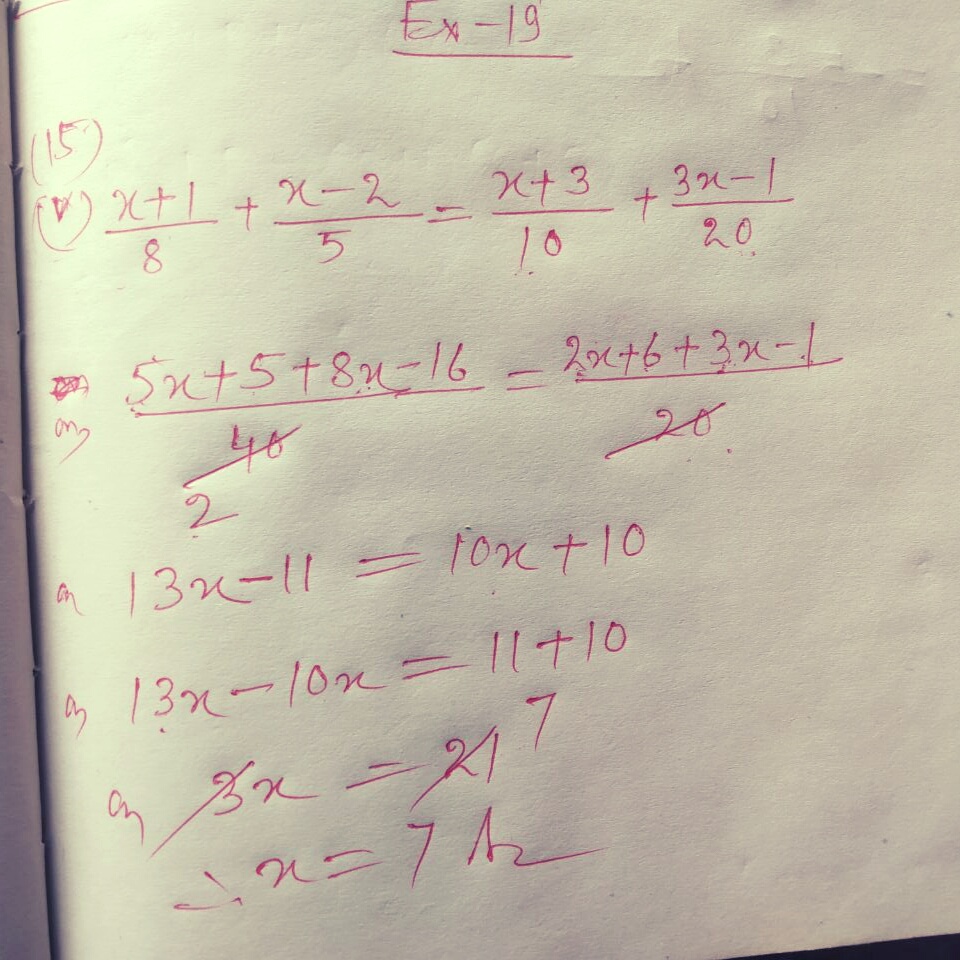 Ex-19
(15)
(v) x+1/8 + x-2/5 = x+3/10 + 3x-1/20
or, 5x+5+8x-16/40 = 2x+6+3x-1/20
2
or 13x-11 = 10x+10
or, 13x-10x = 11+10
or, 3x = 21 7
∴ x = 7 Ans